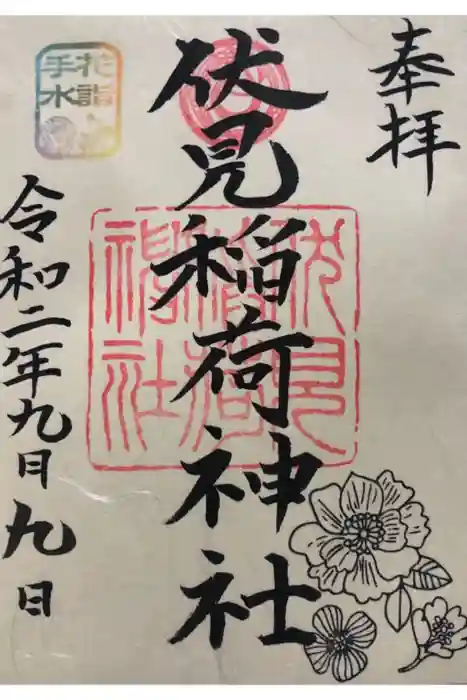 奉拝
伏見稲荷神社
伏見稲荷神社
令和二年九月九日
花詣
手水